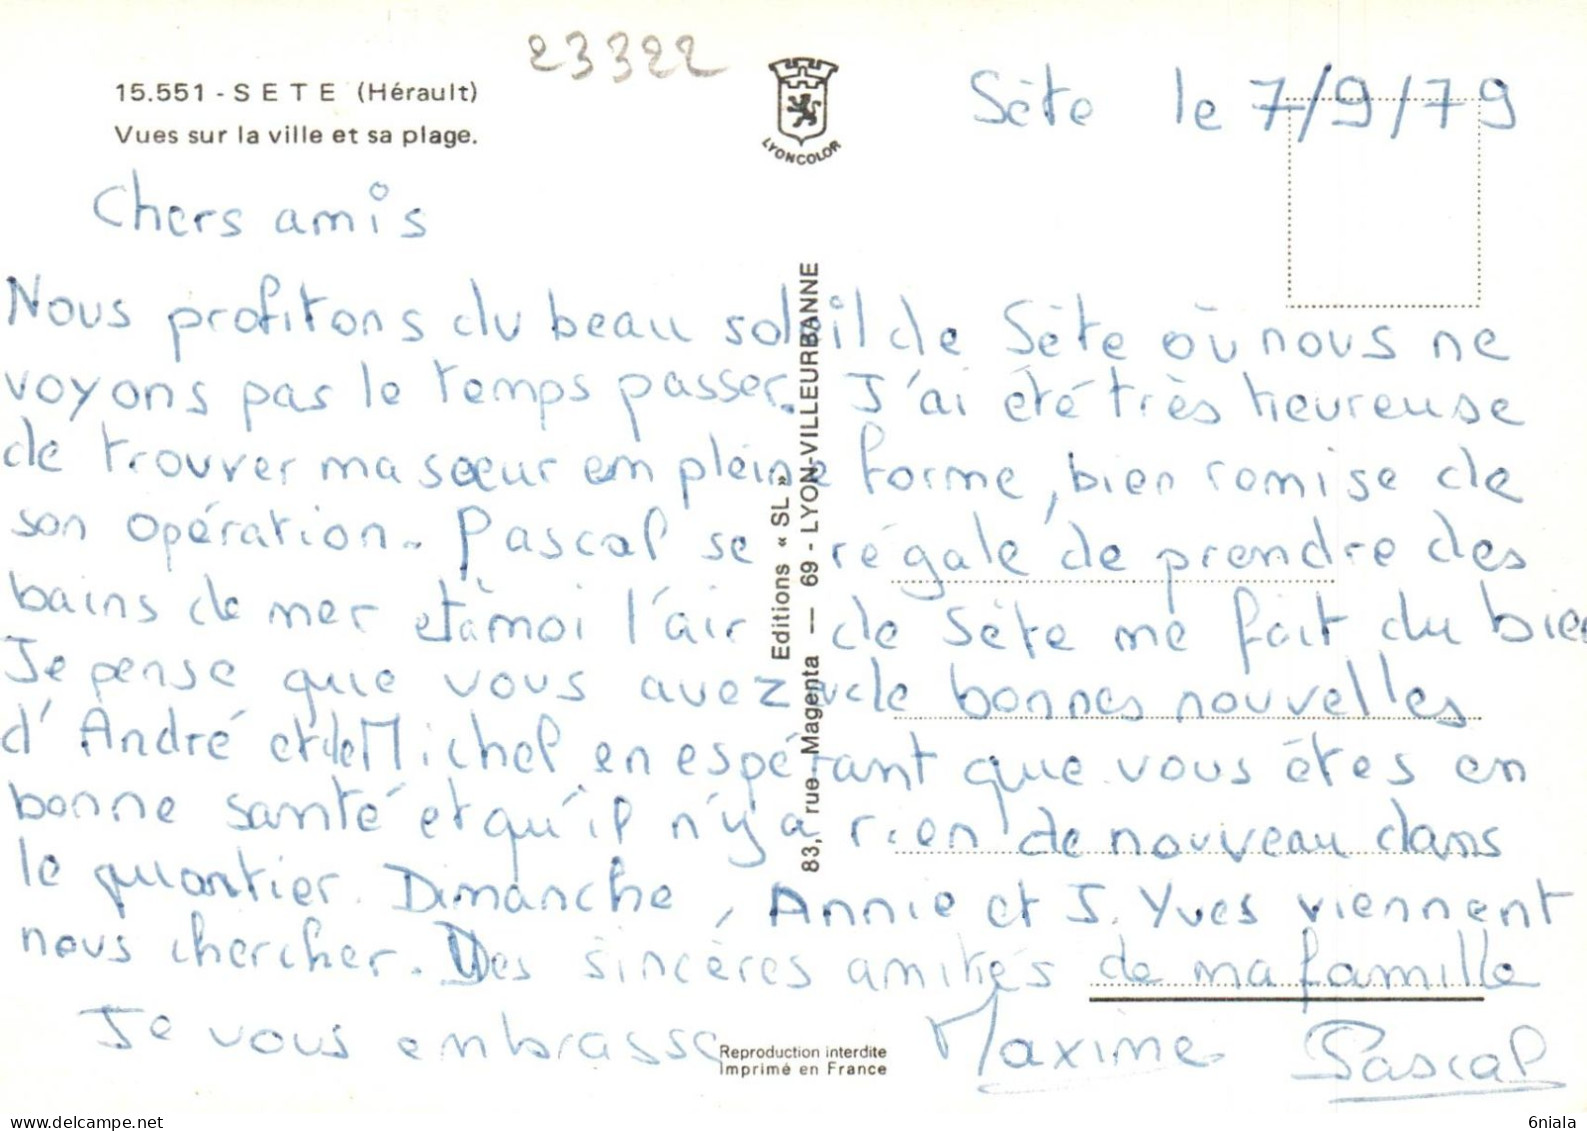 23322
15.551 - SETE (Hérault)
Vues sur la ville et sa plage.
LYONCOLOR
Sète le 7/9/79
Chers amis
Nous profitons du beau soleil de Sète où nous ne
voyons pas le temps passer. J'ai été très heureuse
de trouver ma sœur em pleine forme, bien remise de
son opération. Pascal se régale de prendre des
bains de mer et à moi l'air de Sète me fait du bien
Je pense que vous avez de bonnes nouvelles
d'André et de Michel en espérant que vous êtes en
bonne santé et qu'il n'y a rien de nouveau dans
le quartier. Dimanche, Annie et J. Yves viennent
nous chercher. Des sincères amitiés de ma famille
Je vous embrasse
Maxime Pascal
Editions « SL »
83, rue Magenta — 69 - LYON-VILLEURBANNE
Reproduction interdite
Imprimé en France
delcampe.net
6niala